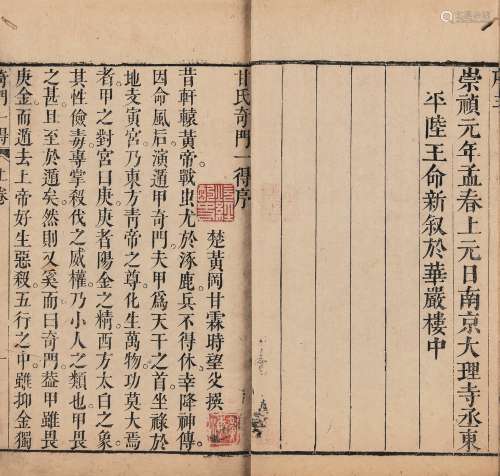 崇禎元年孟春上元日南京大理寺丞東
平陸王命新叙於華嚴樓中
甘氏奇門一得序
楚黃岡甘霖時望父撰
昔軒轅黃帝戰蚩尤於涿鹿兵不得休幸降神傳
因命風后演遁甲奇門夫甲爲天干之首坐祿於
地支寅宮乃東方青帝之尊化生萬物功莫大焉
者甲之對宮曰庚庚者陽金之精西方太白之象
其性儉毒專掌殺伐之威權乃小人之類也甲畏
之甚且至於遁矣然則又奚而曰奇門葢甲雖畏
庚金而遁去上帝好生惡殺五行之中雖抑金獨
奇門一得
上卷